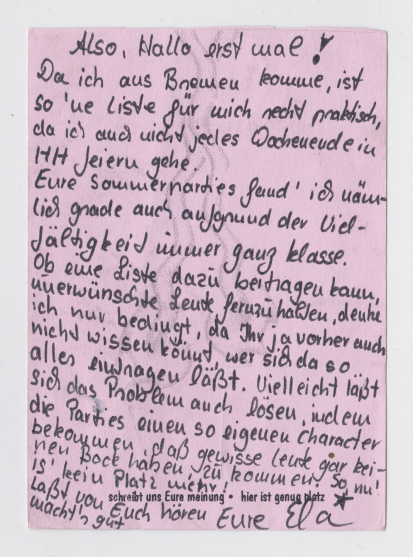 Also, Hallo erst mal!
Da ich aus Bremen komme, ist
so 'ne Liste für mich recht praktisch,
da ich auch nicht jedes Wochenende in
HH feiern gehe.
Eure Sommerparties fand' ich näm-
lich grade auch aufgrund der Viel-
fältigkeit immer ganz klasse.
Ob eine Liste dazu beitragen kann,
unerwünschte Leute fernzuhalten, denke
ich nur bedingt, da Ihr ja vorher auch
nicht wissen könnt, wer sich da so
alles eintragen läßt. Vielleicht läßt
sich das Problem auch lösen, indem
die Parties einen so eigenen Character
bekommen, daß gewisse Leute gar kei-
nen Bock haben, zu kommen. So, nu'
is' kein Platz mehr!
schreibt uns Eure meinung • hier ist genug platz
Laßt von Euch hören
macht's gut Eure Ela